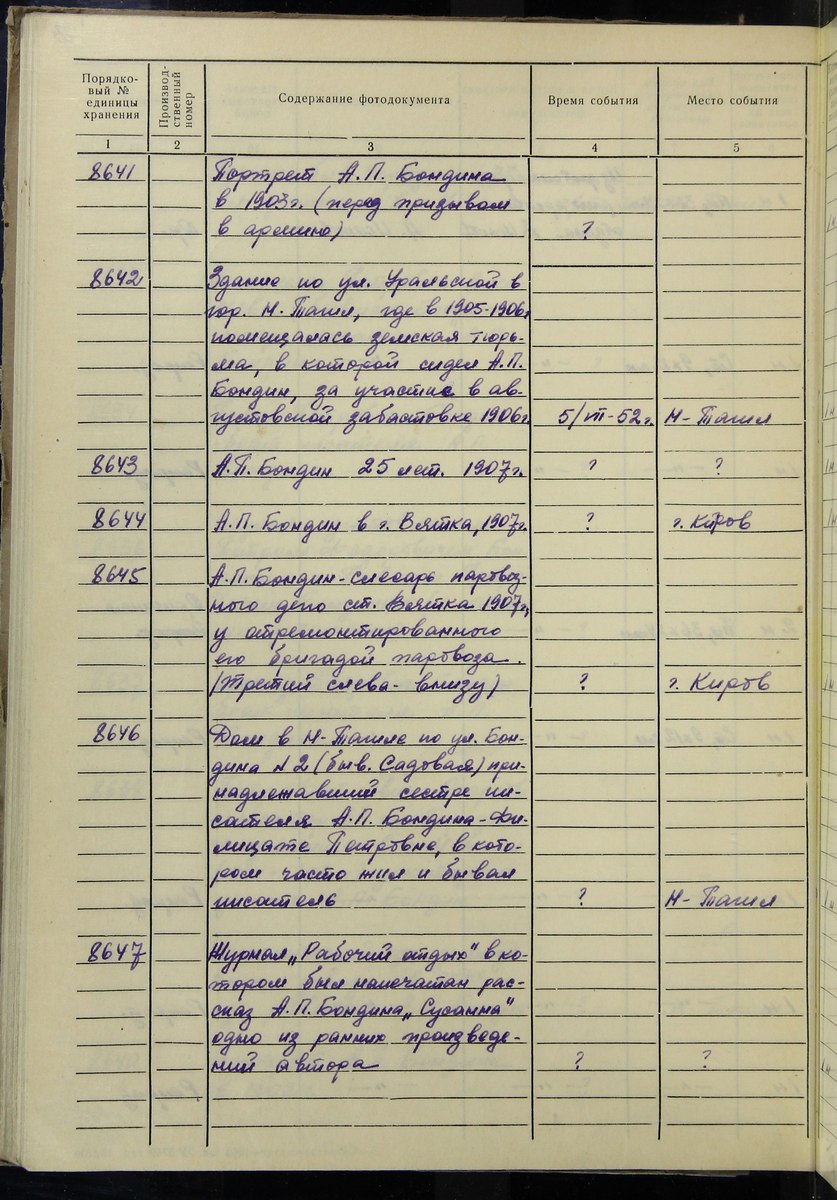 Порядко-
вый №
единицы
хранения
Производ-
ственный
номер
Содержание фотодокумента
Время события
Место события
1 2 3 4 5
8641 Портрет А.П. Бондина
в 1903г. (перед призывом
в армию) ?
8642 Здание по ул. Уральской в
гор. Н. Тагил, где в 1905-1906г
помещалась земская тюрь-
ма, в которой сидел А.П.
Бондин, за участие в ав-
густовской забастовке 1906г. 5/VII-52г. Н-Тагил
8643 А.П. Бондин 25 лет. 1907г. ? ?
8644 А.П. Бондин в г. Вятка, 1907г. ? г. Киров
8645 А.П. Бондин-слесарь паровоз-
ного депо ст. Вятка 1907г,
у отремонтированного
его бригадой паровоза.
(третий слева- внизу) ? г. Киров
8646 Дом в Н-Тагиле по ул. Бон-
дина №2 (быв. Садовая) при-
надлежавший сестре пи-
сателя А.П. Бондина-Фи-
лицате Петровне, в кото-
ром часто жил и бывал
писатель ? Н-Тагил
8647 Журнал „Рабочий отдых" в ко-
тором был напечатан рас-
сказ А.П. Бондина „Сусанна"
одно из ранних произведе-
ний автора ? ?